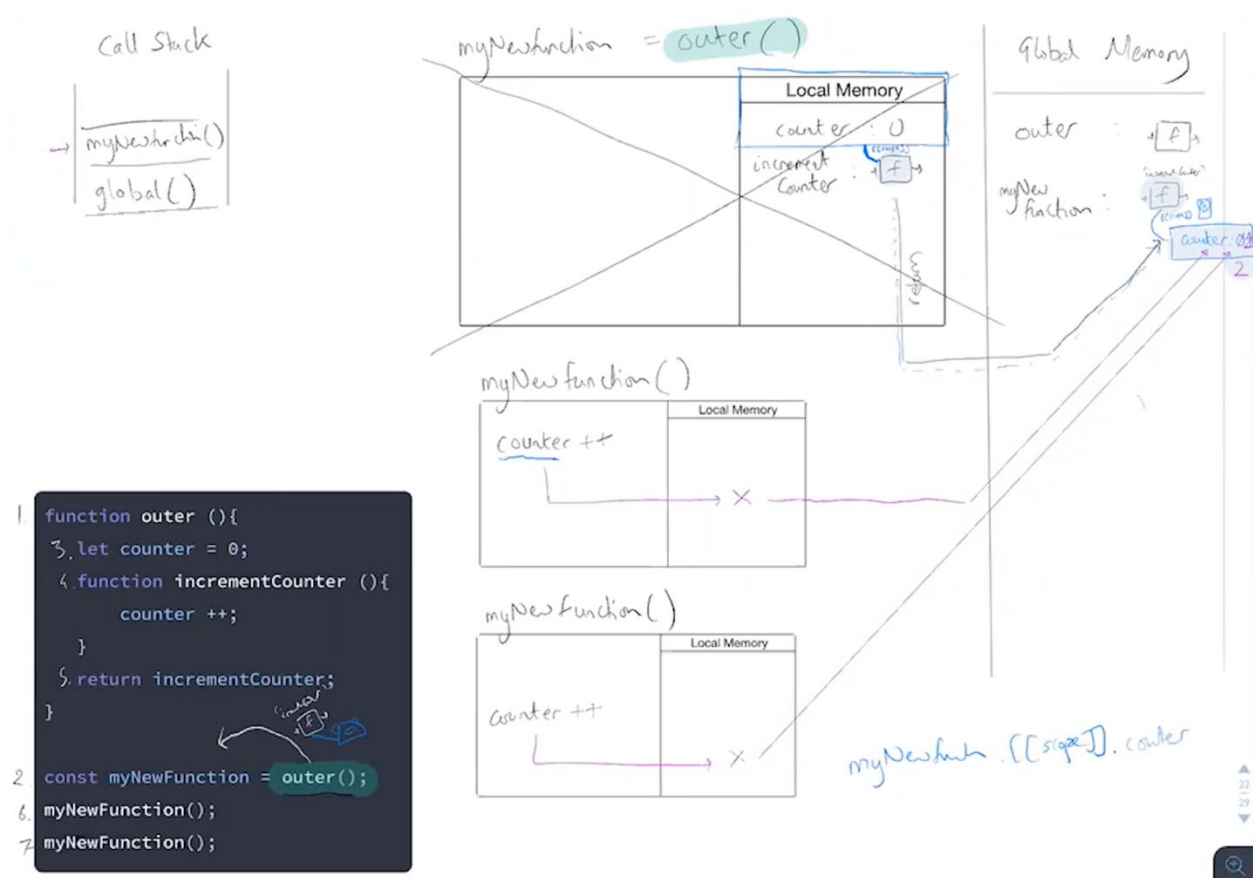 Call Stack
myNewfunchi()
global()
myNewfunction = outer()
Local Memory
counter : 0
[[scope]]
increment
Counter : f
return
Global Memory
outer : f
myNew
function : f
[[scope]]
counter: 0 1
2
myNewfunction()
Local Memory
counter ++
myNewfunction()
Local Memory
counter ++
myNewfunch . [[scope]] . counter
1. function outer (){
3. let counter = 0;
4. function incrementCounter (){
counter ++;
}
5. return incrementCounter;
}
f
2. const myNewFunction = outer();
6. myNewFunction();
7. myNewFunction();
22
29